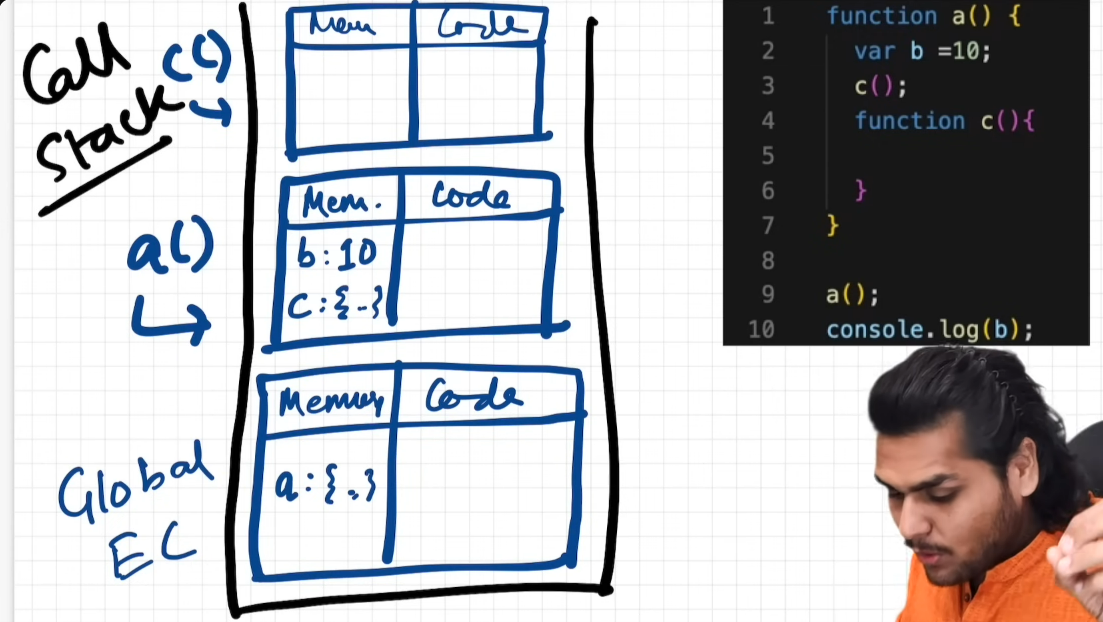 Call
Stack
c()
Mem
Code
a()
Mem.
Code
b : 10
c : {..}
Global
EC
Memory
Code
a : {..}
1 function a() {
2 var b =10;
3 c();
4 function c(){
5
6 }
7 }
8
9 a();
10 console.log(b);